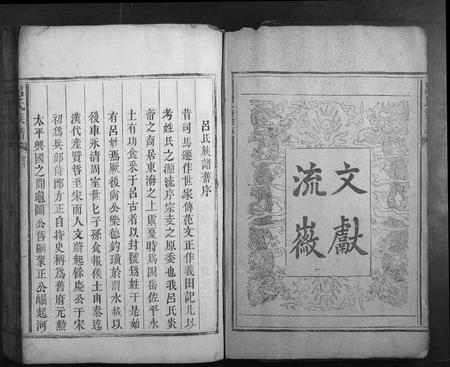 文獻
流徽
呂氏族譜舊序
昔司馬遷作世家傳范文正作義田記凡以
考姓氏之源流序宗支之原委也我呂氏炎
帝之裔居東海之上虞夏時為四岳佐平水
土有功食采于呂古者以封號為姓于是始
有呂姓焉厥後尚公樂德釣璜於渭水載以
後車永清周室世七子孫食報僾土由秦迄
漢代產賢哲至宋而人文蔚起餘慶公于宋
初為兵部侍郎方正自持史稱為舊府元勳
太平興國之間龜圖公哲嗣蒙正公崛起河
呂氏族譜